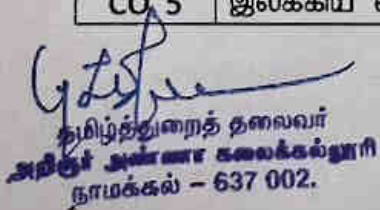 CO 5 இலக்கிய
தமிழ்த்துறைத் தலைவர்
அறிஞர் அண்ணா கலைக்கல்லூரி
நாமக்கல் – 637 002.